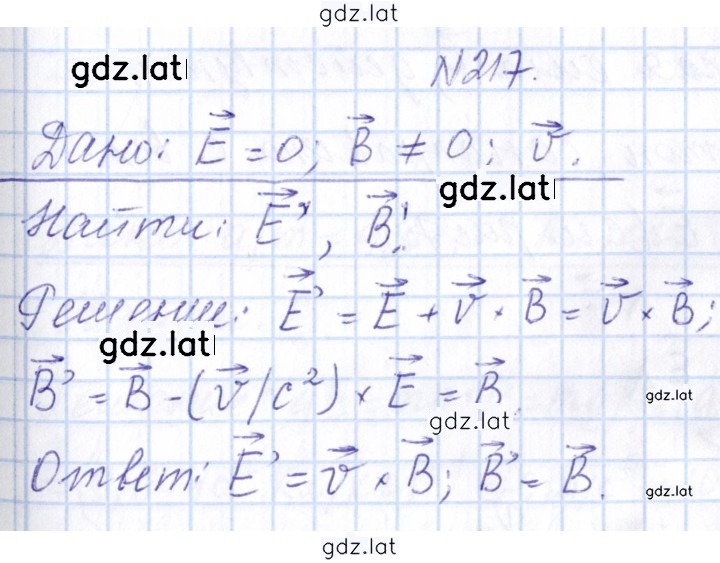 gdz.lat
gdz.lat
N217.
Дано: E⃗ = 0; B⃗ ≠ 0; v⃗.
gdz.lat
Найти: E⃗', B⃗'.
Решение: E⃗' = E⃗ + v⃗ × B⃗ = v⃗ × B⃗;
gdz.lat
B⃗' = B⃗ - (v⃗/c²) × E⃗ = B⃗.
gdz.lat
gdz.lat
Ответ: E⃗' = v⃗ × B⃗; B⃗' = B⃗.
gdz.lat
gdz.lat